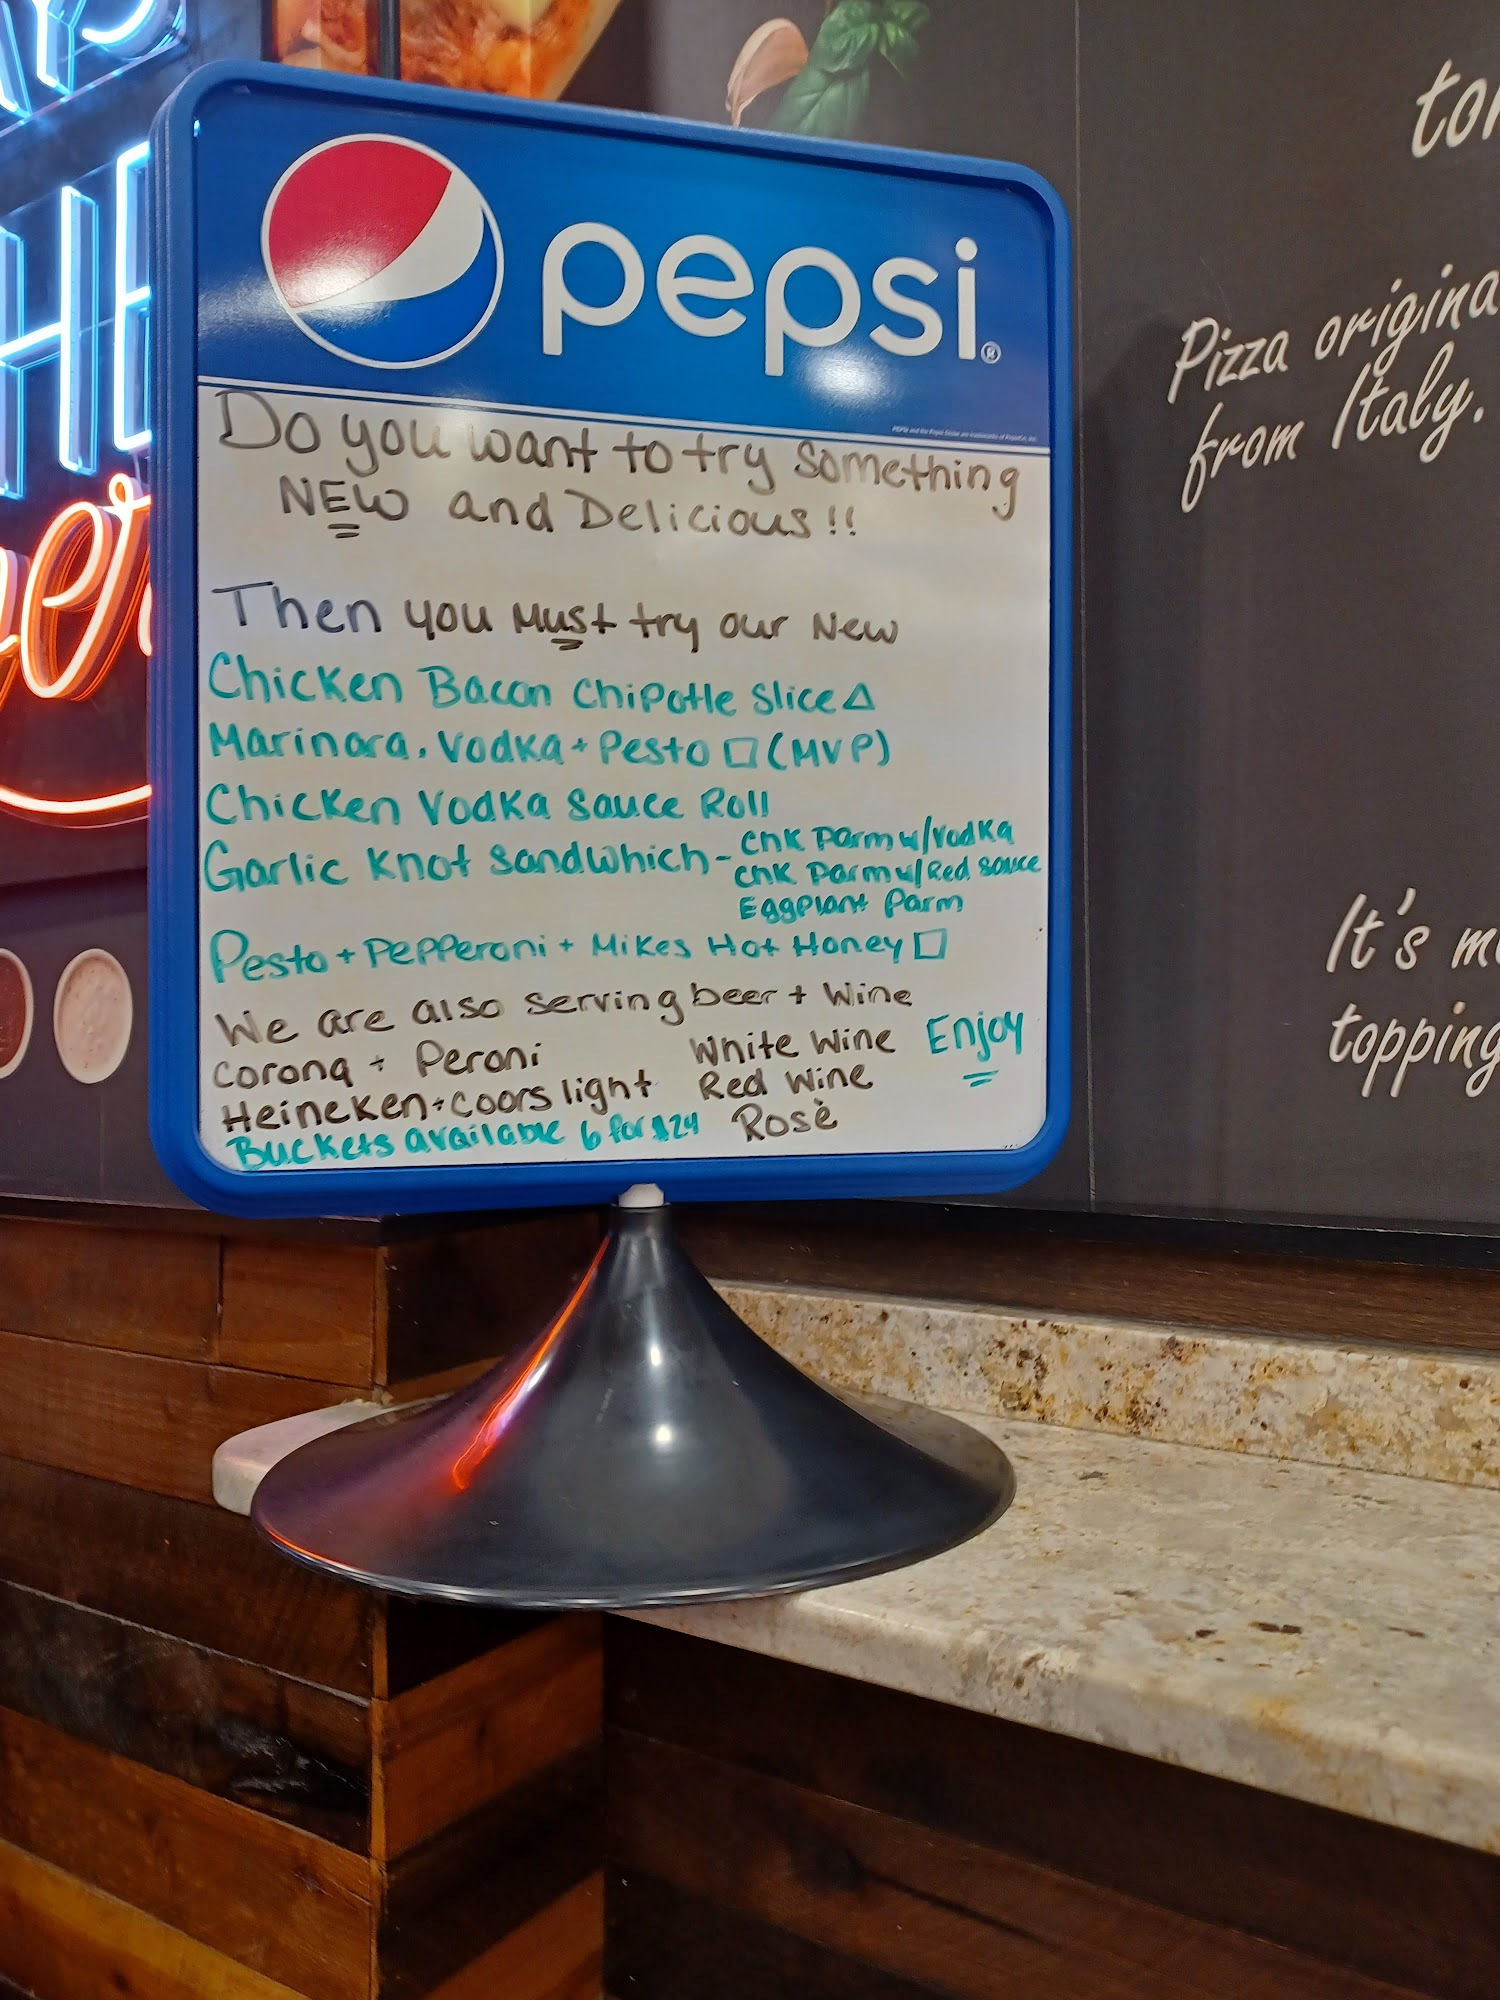 pepsi®
Do you want to try something
NEW and Delicious!!
Then you Must try our New
Chicken Bacon Chipotle Slice △
Marinara, Vodka + Pesto □ (MVP)
Chicken Vodka Sauce Roll
Garlic Knot Sandwhich - Chk Parm w/Vodka
Chk Parm w/Red Sauce
Eggplant Parm
Pesto + Pepperoni + Mikes Hot Honey □
We are also serving beer + Wine
Corona + Peroni
Heineken + Coors light
Buckets available 6 for $24
White Wine
Red Wine
Rosè
Enjoy
Pizza origina
from Italy.
It's m
topping
HE